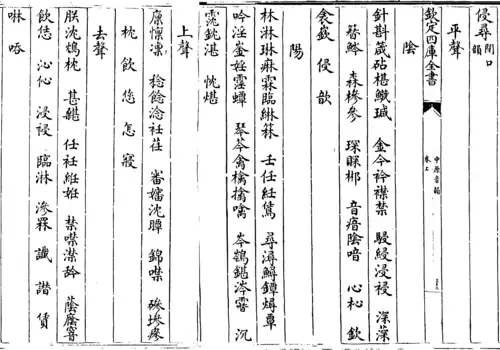 侵尋 閉口
欽定四庫全書
中原音韻
卷上
平聲
陰
針斟箴砧椹鱵瑊 金今衿襟禁 駸綅浸祲 深
簪 森槮參 琛郴 音瘖陰喑 心杺 欽
衾嶔 侵 歆
陽
林淋琳痳霖臨綝箖 壬任紝 尋潯鱘鐔燖蕈
吟淫婬霪蟫 琴芩禽檎擒噙 岑鍖涔霫 沉
霃鈂湛 忱煁
上聲
廩懍凛 稔飪淰衽荏 審嬸沈瞫 錦噤 磣墋瘮
枕 飲 您 怎 寢
去聲
朕沈鴆枕 甚 任衽紝姙 禁噤凚衿 蔭廕窨
飲恁 沁 浸祲 臨淋 滲罧 讖 譖 賃
啉 唚